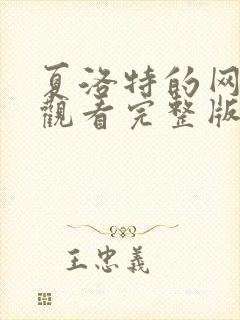 夏洛特的网
觀看完整版
王忠義